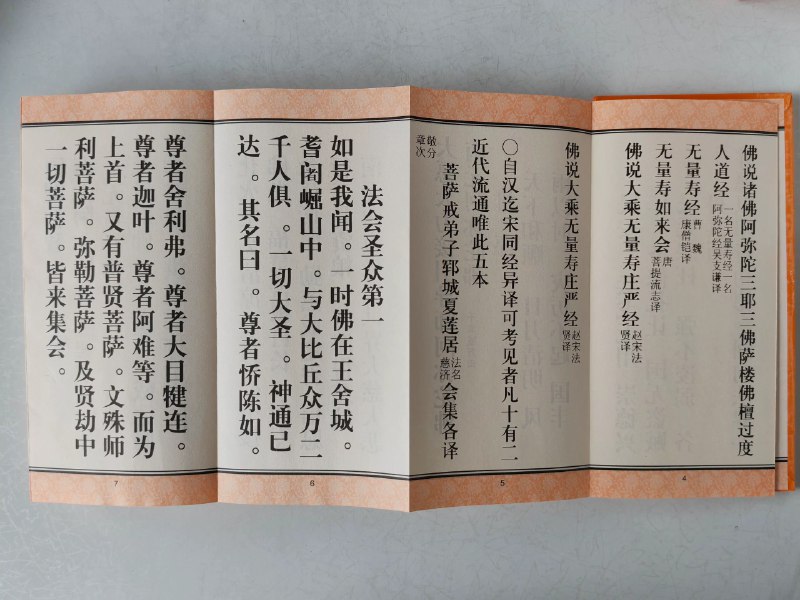 佛说诸佛阿弥陀三耶三佛萨楼佛檀过度
人道经 一名无量寿经一名阿弥陀经吴支谦译
无量寿经 曹魏康僧铠译
无量寿如来会 唐菩提流志译
佛说大乘无量寿庄严经 赵宋法贤译
4
佛说大乘无量寿庄严经 赵宋法贤译
〇自汉迄宋同经异译可考见者凡十有二
近代流通唯此五本
菩萨戒弟子郓城夏莲居 法名慈济 会集各译
敬分章次
5
法会圣众第一
如是我闻。一时佛在王舍城。
耆阇崛山中。与大比丘众万二
千人俱。一切大圣。神通已
达。其名曰。尊者憍陈如。
6
尊者舍利弗。尊者大目犍连。
尊者迦叶。尊者阿难等。而为
上首。又有普贤菩萨。文殊师
利菩萨。弥勒菩萨。及贤劫中
一切菩萨。皆来集会。
7